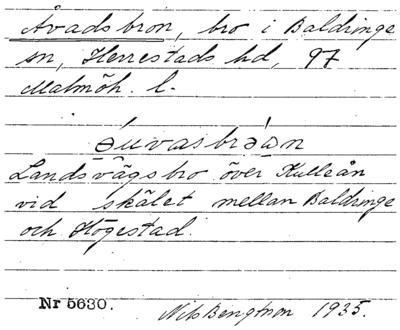 Åvadsbron, bro i Baldringe
sn, Herrestads hd, 97
Malmöh. l.
ə́uvasbrə̀ɷn
Landsvägsbro över Kulleån
vid skälet mellan Baldringe
och Högestad.
Nr 5630. Nils Bengtson 1935.